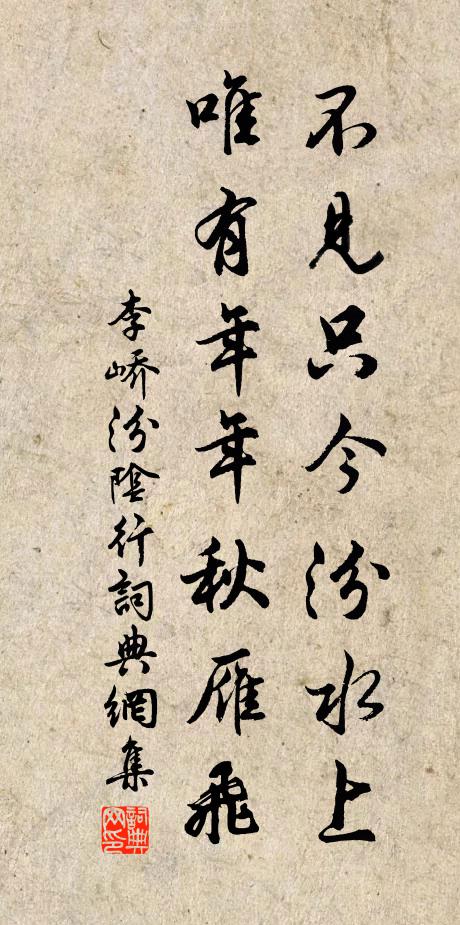 不見只今汾水上
唯有年年秋雁飛
李嶠汾陰行詞典網集
詞典網印